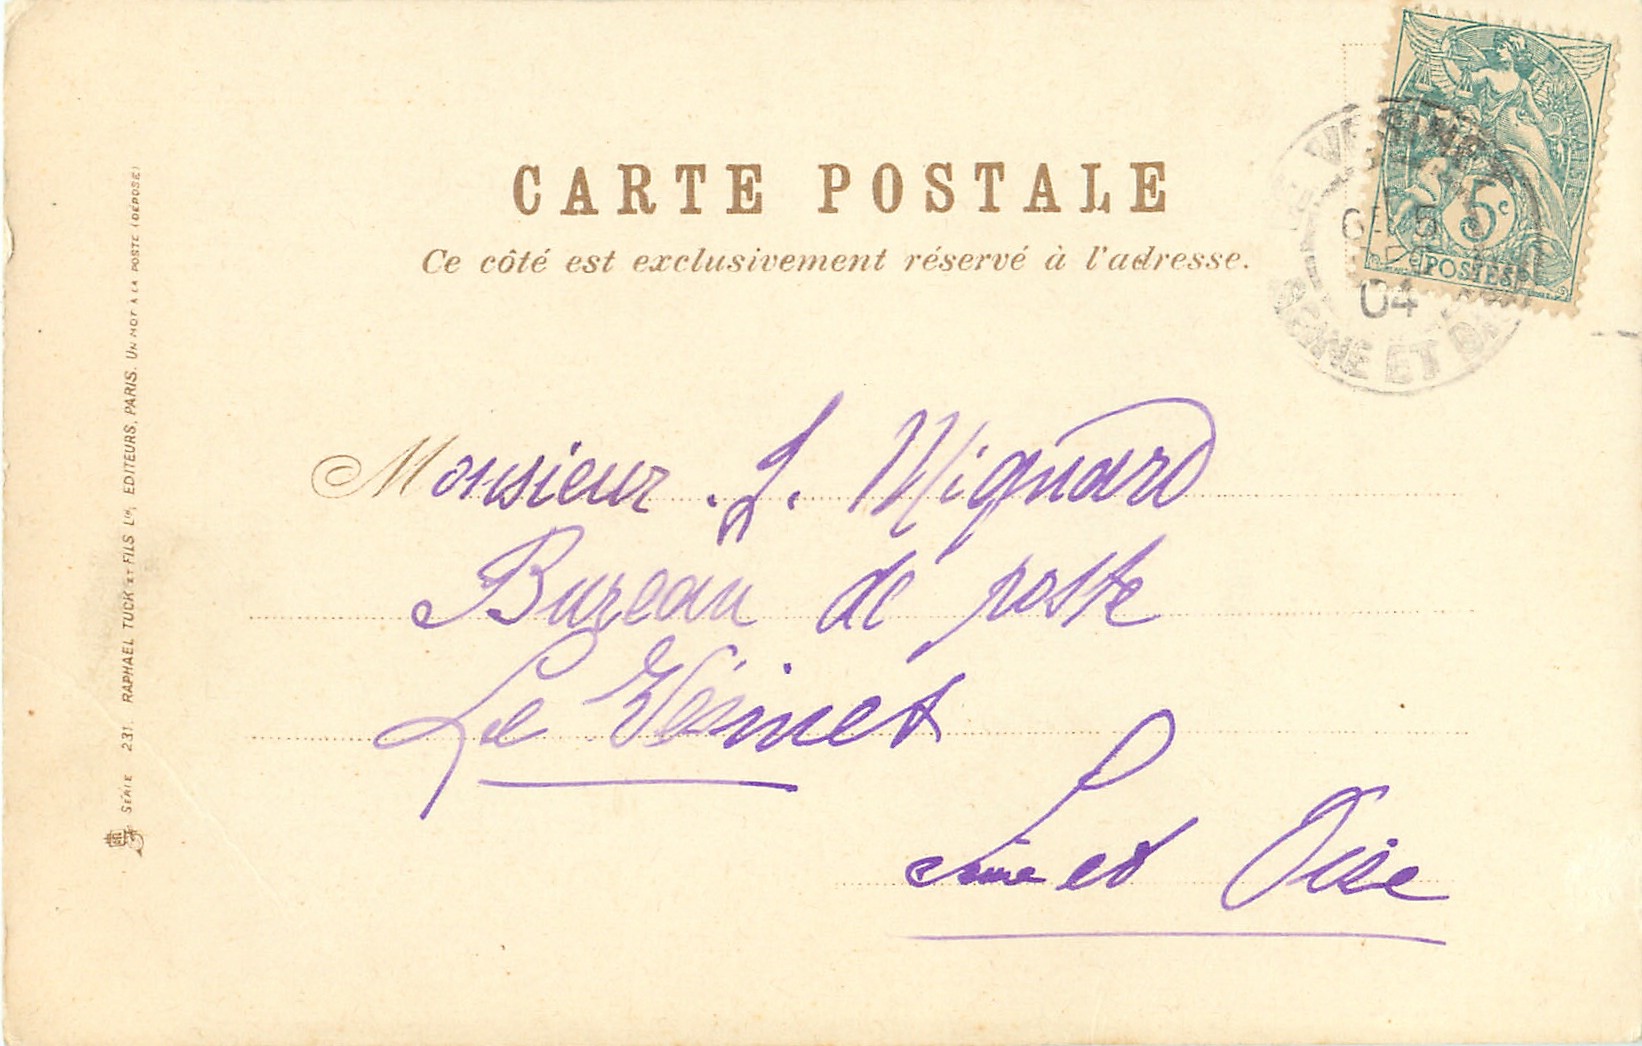 CARTE POSTALE
Ce côté est exclusivement réservé à l'adresse.
5c
POSTES
04
SEINE ET
Monsieur . L. Mignard
Bureau de poste
Le Vésinet
Seine et Oise
SÉRIE 231. RAPHAEL TUCK ET FILS Lté, EDITEURS, PARIS. UN MOT À LA POSTE (DÉPOSÉ)